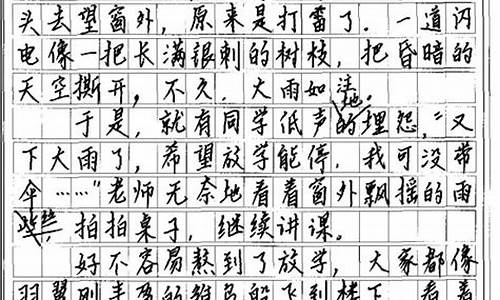 头去望窗外，原来是打雷了。一道闪
电像一把长满银刺的树枝，把昏暗的
天空撕开，不久，大雨如注。
于是，就有同学低声地埋怨，“又
下大雨了，希望放学能停，我可没带
伞……”老师无奈地看着窗外飘摇的雨
丝，拍拍桌子，继续讲课。
好不容易熬到了放学，大家都像
羽翼刚丰的般飞到楼下，看着